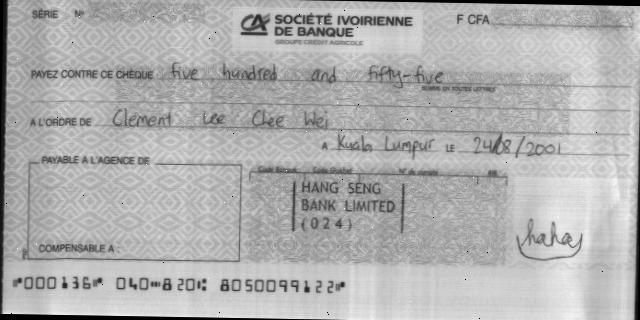 SÉRIE N° CA SOCIÉTÉ IVOIRIENNE F CFA
DE BANQUE
GROUPE CRÉDIT AGRICOLE
PAYEZ CONTRE CE CHÈQUE five hundred and fifty-five
SOMME EN TOUTES LETTRES
A L'ORDRE DE Clement Lee Chee Wei
A Kuala Lumpur LE 24/08/2001
PAYABLE A L'AGENCE DE
Code Banque Code Guichet N° de compte RIB
HANG SENG
BANK LIMITED
(024)
haha
COMPENSABLE A :
⑈000136⑈ 040⑉820⑆ 8050099122⑈